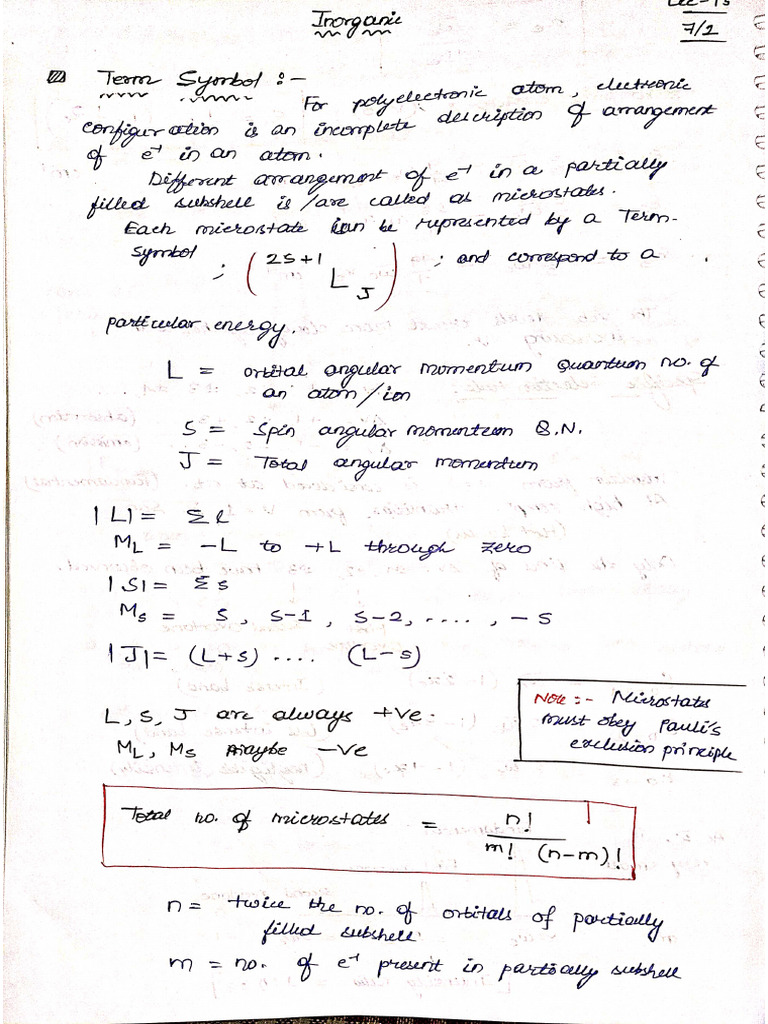 Inorganic
7/2
Term Symbol :-
For polyelectronic atom, electronic
configuration is an incomplete description of arrangement
of e⁻¹ in an atom.
Different arrangement of e⁻¹ in a partially
filled subshell is/are called as microstates.
Each microstate can be represented by a Term-
symbol ; (²ˢ⁺¹L_J) ; and correspond to a
particular energy.
L = orbital angular momentum Quantum no. of
an atom/ion
S = Spin angular momentum Q.N.
J = Total angular momentum
|L| = Σl
M_L = -L to +L through zero
|S| = Σs
M_s = S, S-1, S-2, ...., -S
|J| = (L+S) .... (L-S)
L, S, J are always +ve.
M_L, M_S maybe -ve
Note :- Microstates
must obey Pauli's
exclusion principle
Total no. of microstates = n! / m! (n-m)!
n = twice the no. of orbitals of partially
filled subshell
m = no. of e⁻¹ present in partially subshell